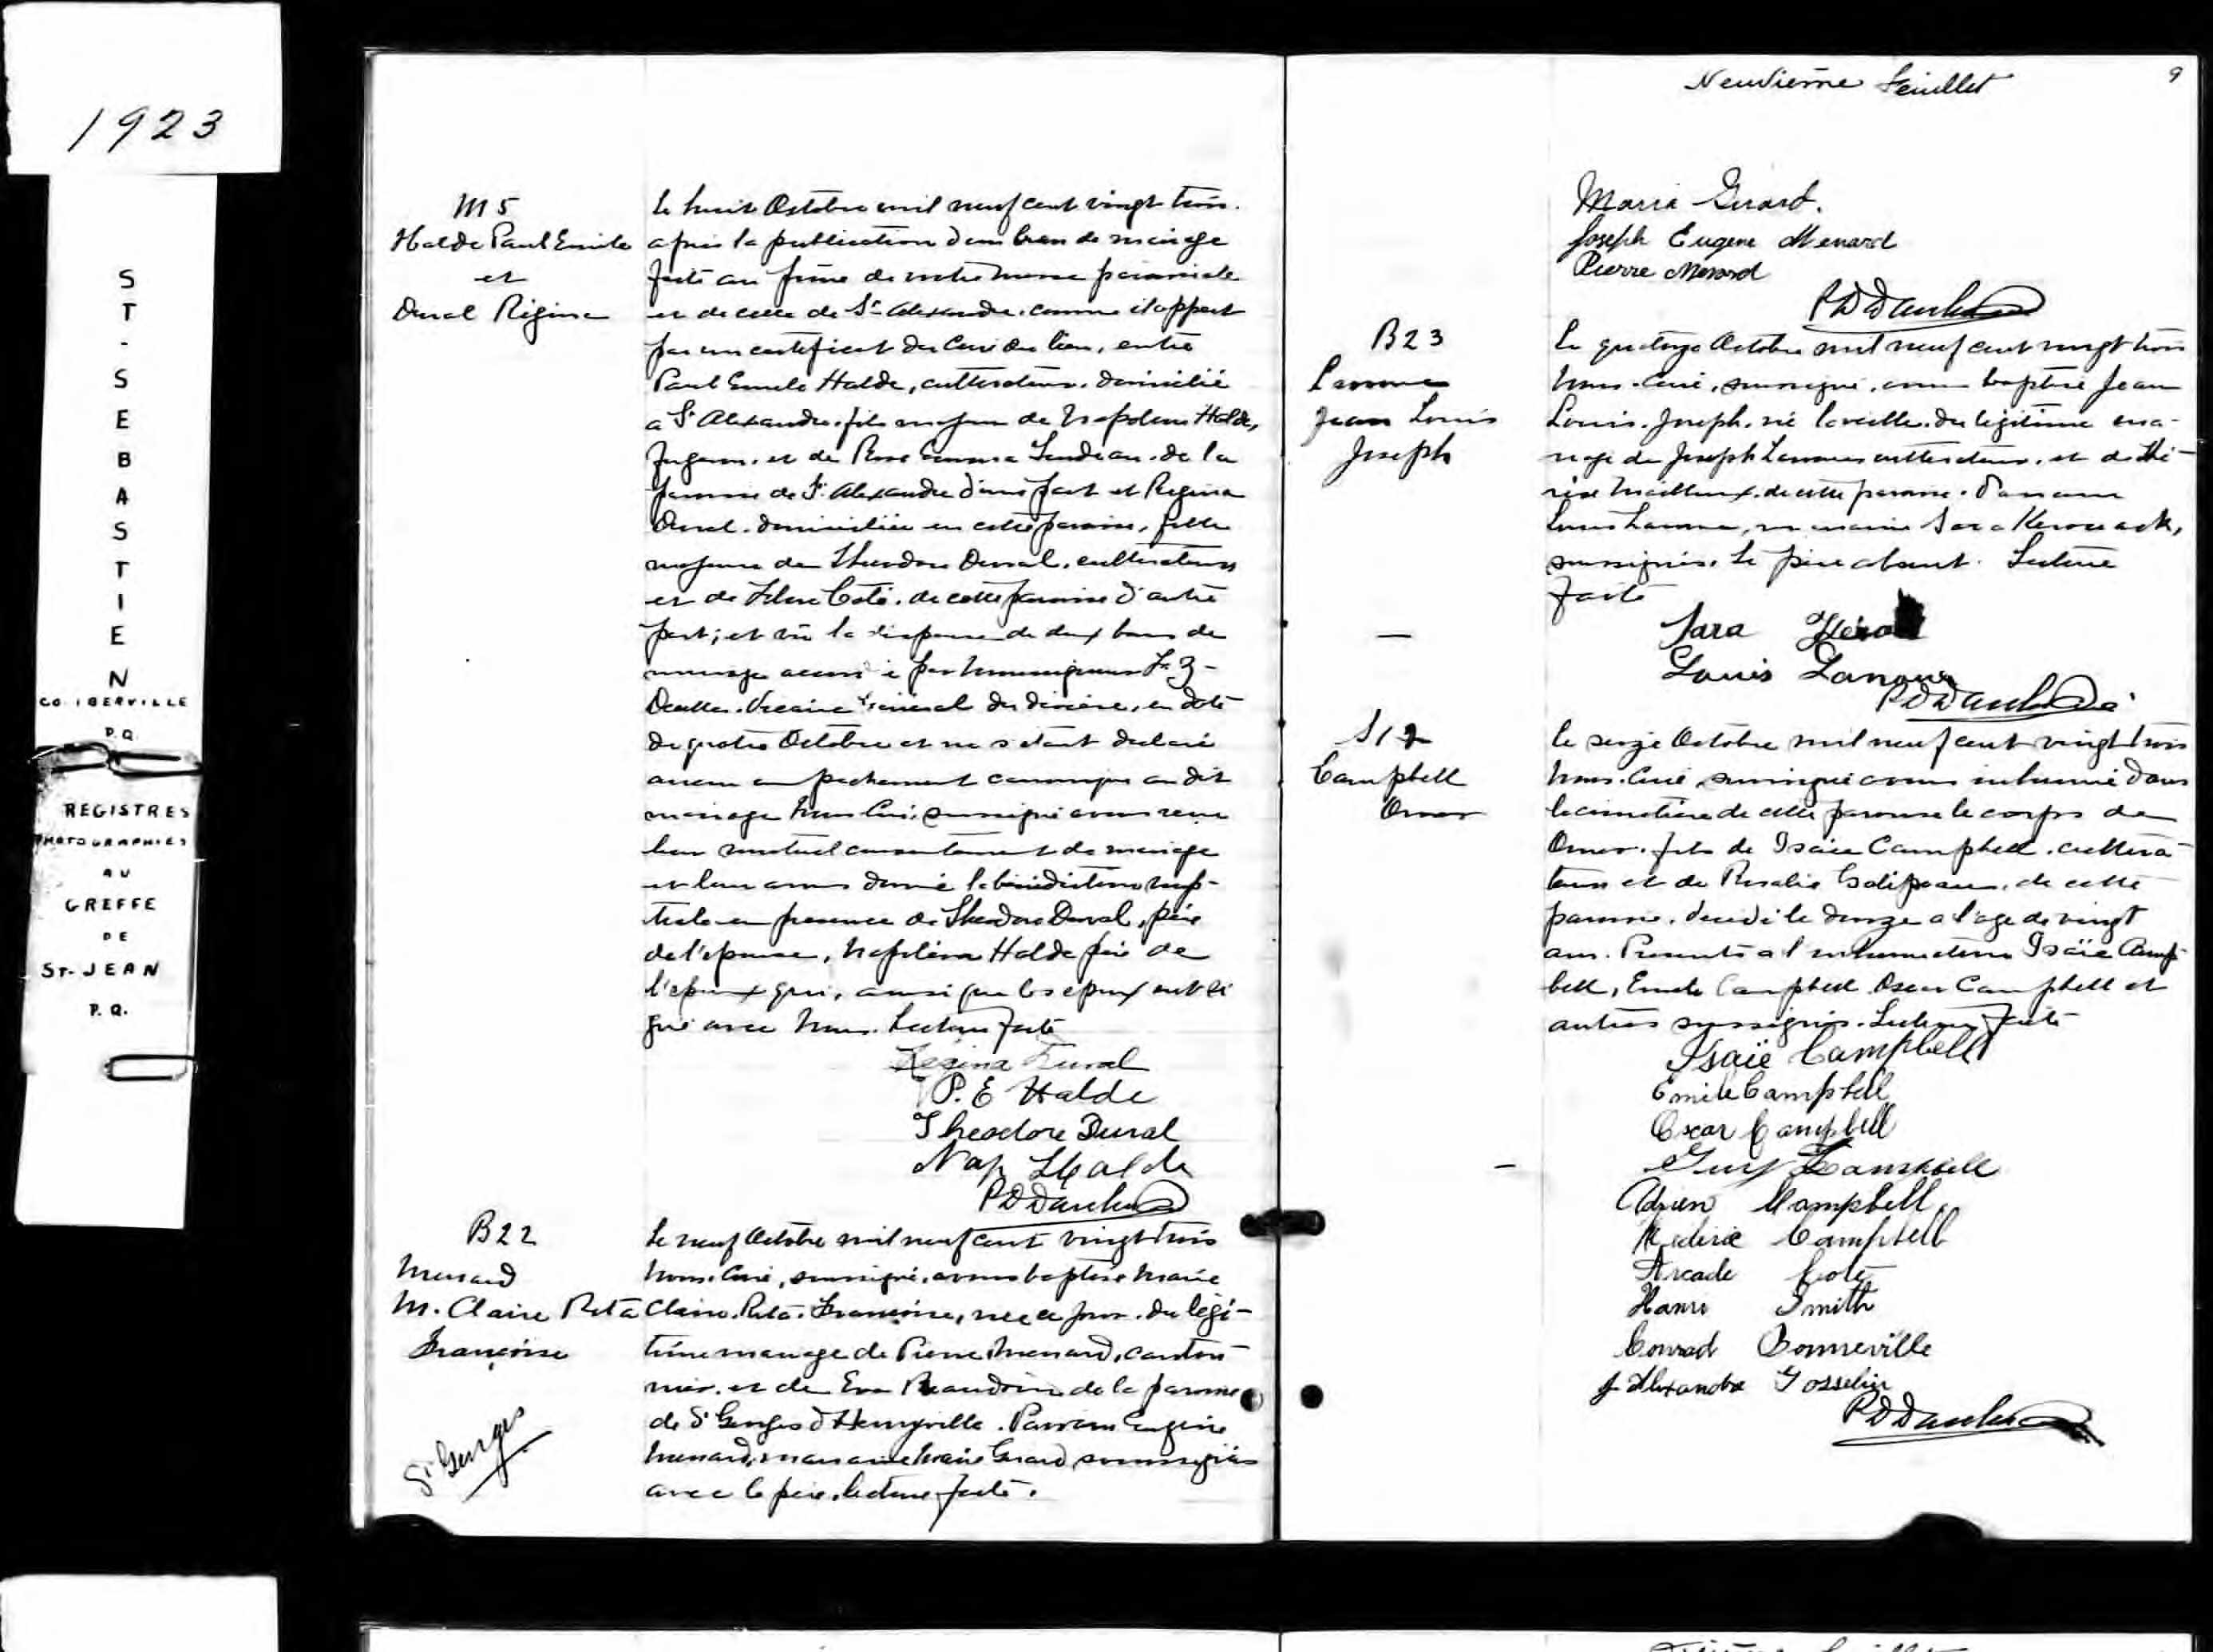 1923
ST-SEBASTIEN
CO. IBERVILLE
P.Q.
REGISTRES
PHOTOGRAPHIES
AU
GREFFE
DE
ST-JEAN
P.Q.
M5
Halde Paul Emile
et
Duval Régina
Le huit Octobre mil neuf cent vingt trois.
après la publication d'un ban de mariage
faite au prône de notre messe paroissiale
et de celle de St Alexandre, comme il appert
par un certificat du Curé du lieu, entre
Paul Emile Halde, cultivateur, domicilié
a St Alexandre, fils majeur de Napoleon Halde,
et de Rose Emma de la
paroisse de St Alexandre d'une part et Regina
Duval, domiciliée en cette paroisse, fille
majeure de Theodore Duval, cultivateur
et de Coté, de cette paroisse d'autre
part; et vu la dispense de deux bans de
mariage accordée par Monseigneur
Vicaire général du diocèse, en date
du quatre Octobre et ne s'étant declaré
aucun empechement canonique au dit
mariage Nous Curé, soussigné avons reçu
leur mutuel consentement de mariage
et leur avons donné la bénédiction nup-
tiale en presence de Theodore Duval, père
de l'epouse, Napoléon Halde père de
l'epoux qui, ainsi que les epoux ont si
gné avec Nous. Lecture faite
Regina Duval
P. E Halde
Theodore Duval
Nap Halde
B22
Menard
M. Claire Rita
Françoise
St Georges
Le neuf Octobre mil neuf cent vingt trois
Nous, Curé, soussigné, avons baptisé Marie
Claire, Rita, Françoise, née ce jour, du légi-
time mariage de Pierre Menard, canton-
nier, et de Eva Beaudoin de la paroisse
de St Georges d'Henryville. Parrain Eugène
Menard, marraine Maria Gerard soussignés
avec le père, lecture faite.
Neuvième feuillet
9
Maria Girard.
Joseph Eugene Menard
Pierre Menard
B23
Lanoue
Jean Louis
Joseph
Le quatorze Octobre mil neuf cent vingt trois
Nous, Curé, soussigné, avons baptisé Jean
Louis, Joseph, né la veille, du légitime ma-
riage de Joseph Lanoue cultivateur, et de Thé-
rèse Mailloux, de cette paroisse. Parrain
Louis Lanoue, marraine Sara Kerouack,
soussignés. Le père absent. Lecture
faite
Sara
Louis Lanoue
S12
Campbell
Omer
Le seize Octobre mil neuf cent vingt trois
Nous, Curé, soussigné avons inhumé dans
le cimetière de cette paroisse le corps de
Omer, fils de Isaïe Campbell, cultiva-
teur et de Rosalie Galipeau, de cette
paroisse, decedé le douze a l'age de vingt
ans. Presents a l'inhumation Isaïe Camp-
bell, Emile Campbell Oscar Campbell et
autres soussignés. Lecture faite
Isaïe Campbell
Emile Campbell
Oscar Campbell
Campbell
Adrien Campbell
Mederic Campbell
Arcade Coté
Henri Smith
Conrad Bonneville
J. Alexandre Gosselin